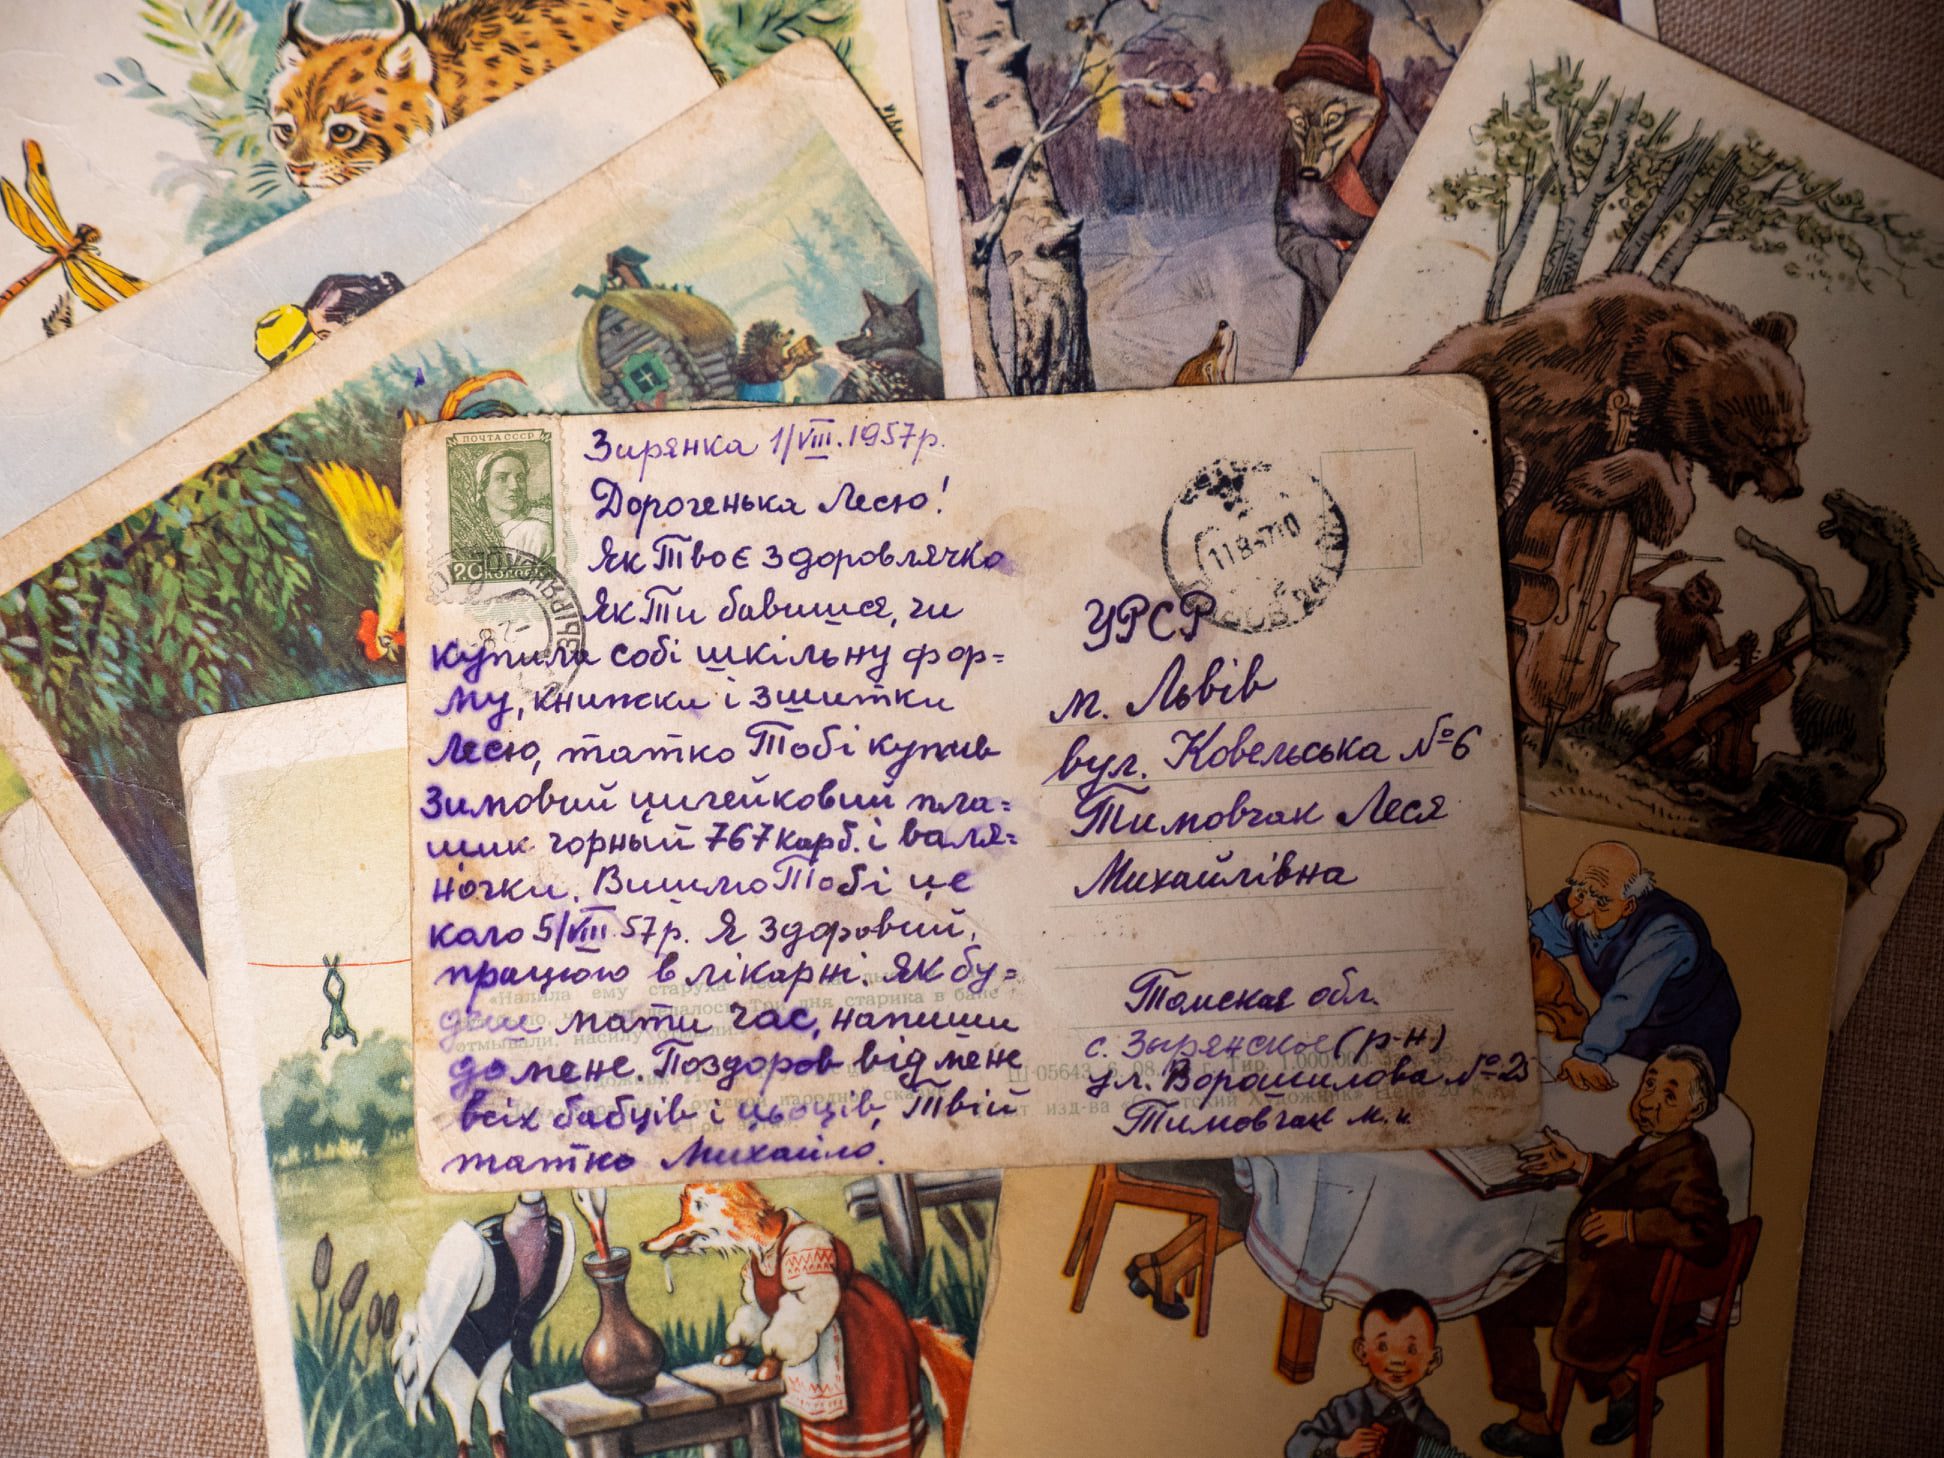 ПОЧТА СССР
20 КОПЕЕК
Зирянка 1/VIII.1957р.
Дорогенька Лесю!
Як Твоє здоровлячко
Як Ти бавишся, чи
купила собі шкільну фор=
му, книжки і зшитки
Лесю, татко Тобі купив
Зимовий цигейковий пла=
щик чорный 767 карб. і валя=
ночки. Вишлю Тобі це
коло 5/VIII 57р. Я здоровий,
працюю в лікарні. Як бу=
деш мати час, напиши
до мене. Поздоров від мене
всіх бабців і цьоців, Твій
татко Михайло.
1185710
УРСР
м. Львів
вул. Ковельська №6
Тимовчак Леся
Михайлівна
Томская обл.
с. Зырянское (р-н)
ул. Ворошилова №25
Тимовчак М. И.
«Налила ему старуха
три дня старика в бане
отмывали, насилу
русской народной
Ш-05643 6. 08. Тир. 1.000.000
изд-ва «Советский Художник» Цена 20 к.